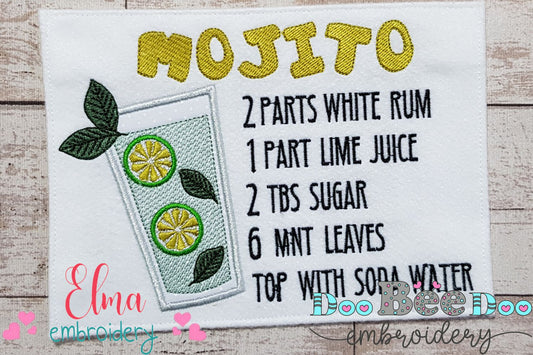 MOJITO
2 PARTS WHITE RUM
1 PART LIME JUICE
2 TBS SUGAR
6 MNT LEAVES
TOP WITH SODA WATER
Elma
embroidery
DooBeeDoo
embroidery